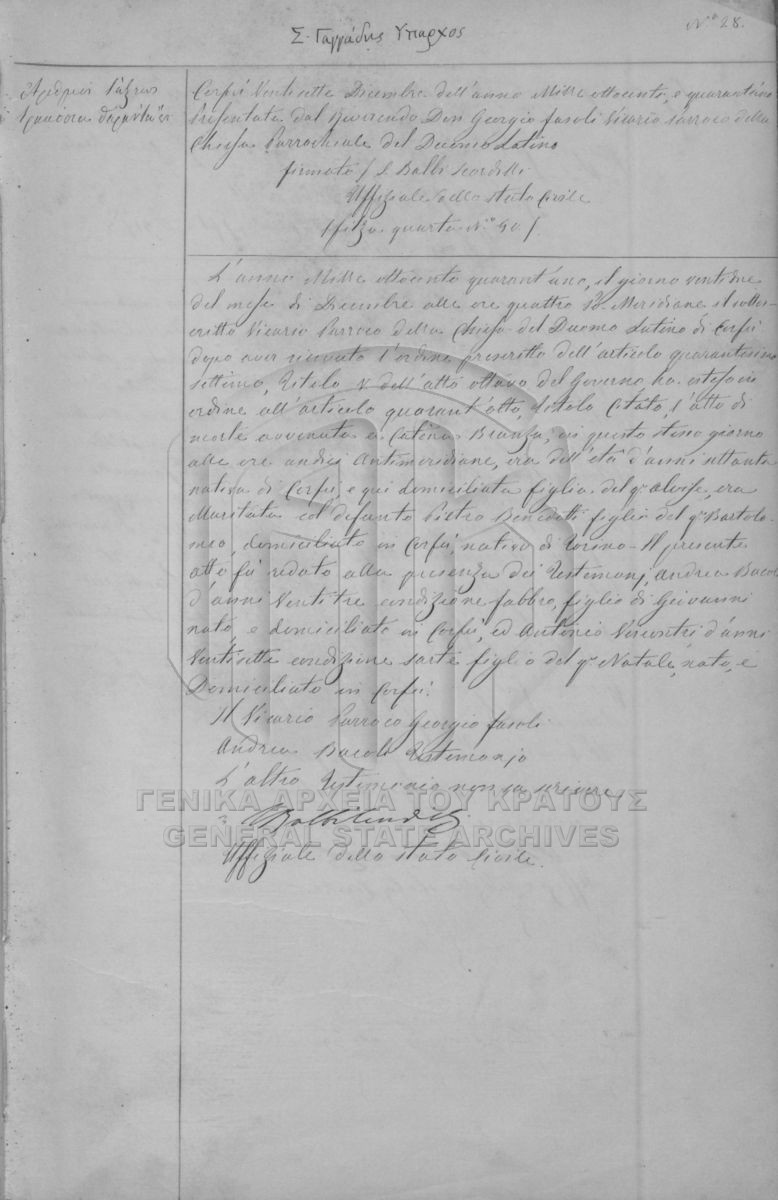 Σ. Γαγγάδης Ύπαρχος
N.º 28.
Ἀριθμοί Τάξεως
Corfù Ventisette Dicembre dell'anno Mille ottocento, e quarantuno
Presentata dal Reverendo Don Georgio Fasoli Vicario Parroco della
Chiesa Parrochiale del Duomo Latino
firmato / S. Balbi
Uffiziale dello stato Civile
/ filza quarta N.º 40. /.
L'anno Mille ottocento quarant'uno, il giorno ventidue
del mese di Dicembre alle ore quattro P. Meridiane il sotto-
critto Vicario Parroco della Chiesa del Duomo Latino di Corfù
dopo aver ricevuto l'ordine prescritto dell'articolo quarantesimo
settimo, Titolo V. dell'atto ottavo del Governo, ha esteso in
ordine all'articolo quarant'otto, titolo Citato, l'atto di
morte avvenuta a Catina Branza, in questo stesso giorno
alle ore undici Antimeridiane, era dell'età d'anni settanta
nativa di Corfù, e qui domiciliata figlia del q.m Aloise, era
Maritata col defunto Pietro Benedetti figlio del q.m Bartolo-
meo, domiciliato in Corfù, nativo di Torino - Il presente
atto fù redato alla presenza dei Testimonj, Andrea Bacoli
d'anni Ventitre condizione fabbro, figlio di Giovanni
nato, e domiciliato in Corfù, ed Antonio Viscontri d'anni
Ventisette condizione sarte figlio del q.m Natale, nato, e
Domiciliato in Corfù.
Il Vicario Parroco Georgio Fasoli
Andrea Bacoli Testimonio
L'altro Testimonio non sa scrivere
ΓΕΝΙΚΑ ΑΡΧΕΙΑ ΤΟΥ ΚΡΑΤΟΥΣ
GENERAL STATE ARCHIVES
Uffiziale dello stato Civile.